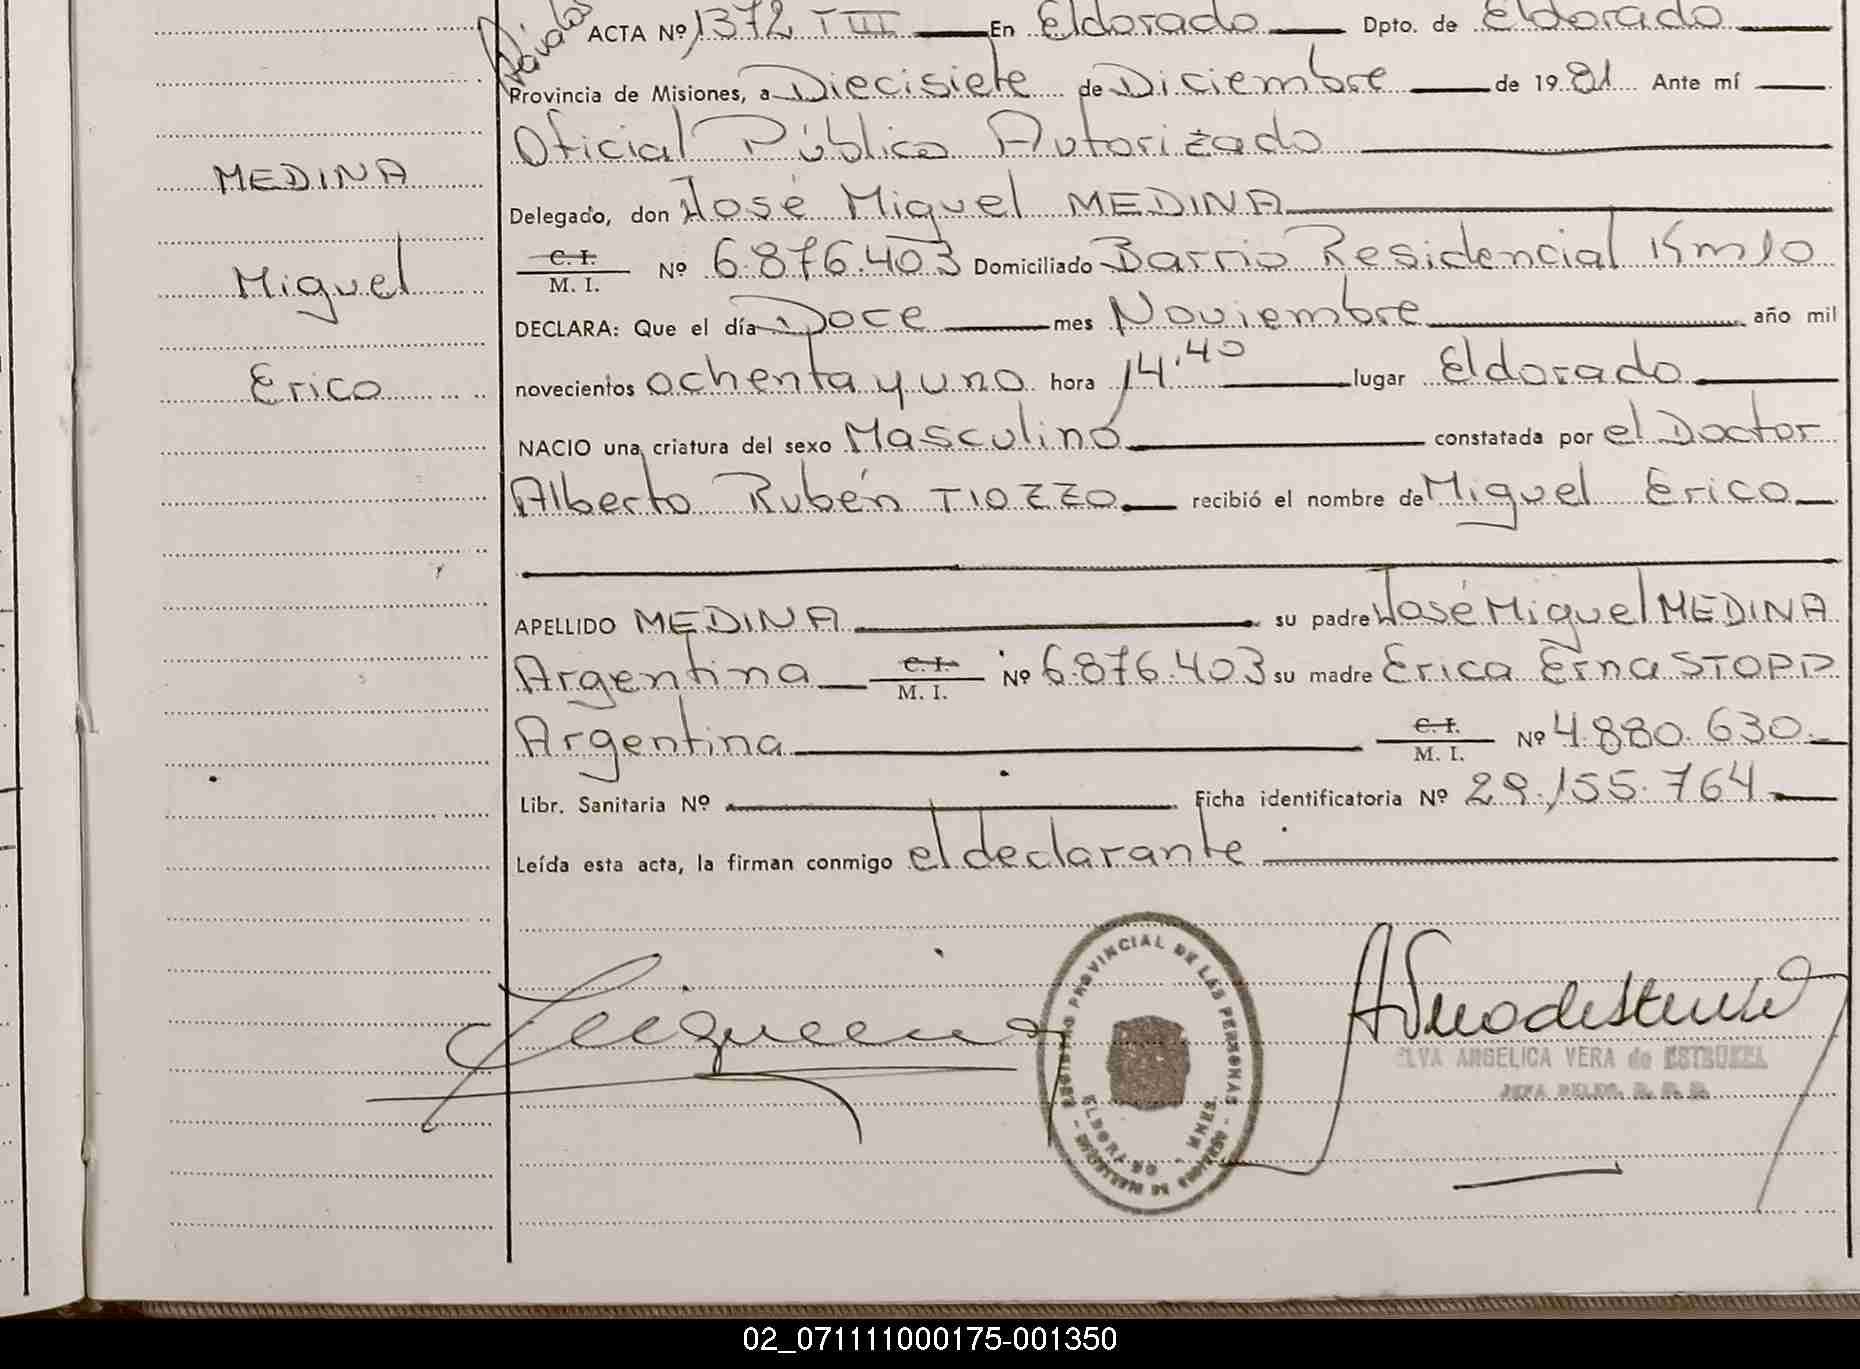 ACTA Nº 1372 T III En Eldorado Dpto. de Eldorado
Provincia de Misiones, a Diecisiete de Diciembre de 1981 Ante mí
Oficial Público Autorizado
MEDINA
Delegado, don José Miguel MEDINA
C. I.
M. I. Nº 6.876.403 Domiciliado Barrio Residencial Km 10
Miguel
DECLARA: Que el día Doce mes Noviembre año mil
novecientos ochenta y uno hora 14.40 lugar Eldorado
Erico
NACIO una criatura del sexo Masculino constatada por el Doctor
Alberto Rubén TIOZZO recibió el nombre de Miguel Erico
APELLIDO MEDINA su padre José Miguel MEDINA
Argentina C. I.
M. I. Nº 6.876.403 su madre Erica Erna STOPP
Argentina C. I.
M. I. Nº 4.880.630
Libr. Sanitaria Nº Ficha identificatoria Nº 29.155.764
Leída esta acta, la firman conmigo el declarante
REGISTRO PROVINCIAL DE LAS PERSONAS
ELDORADO - MNES.
ELVA ANGELICA VERA de ESTRUKEL
02_071111000175-001350